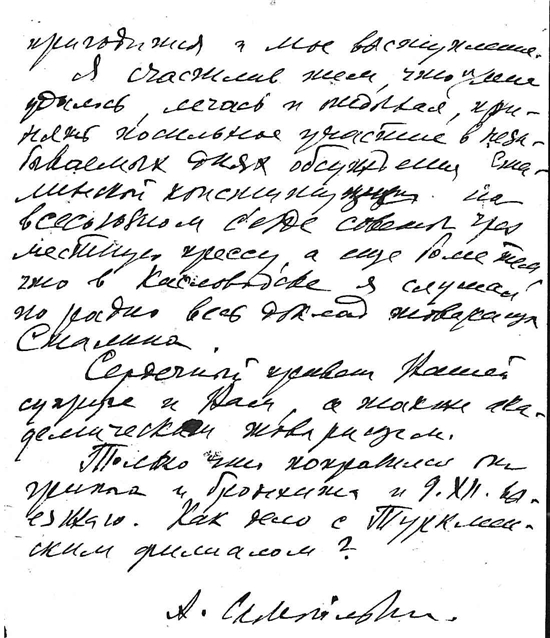 пригодится и мое выступление.
Я счастлив тем, что мне
удалось, лечась и отдыхая, при-
нять посильное участие в неза-
бываемых днях обсуждения Ста-
линской конституции на
всесоюзном с'езде советов чрез
местную прессу, а еще более тем,
что в Кисловодске я слушал
по радио весь доклад товарища
Сталина.
Сердечный привет Вашей
супруге и Вам, а также ака-
демическим товарищам.
Только что поправился от
гриппа и бронхита и 9.XII. вы-
езжаю. Как дело с Туркмен-
ским филиалом?
А. Самойлович.